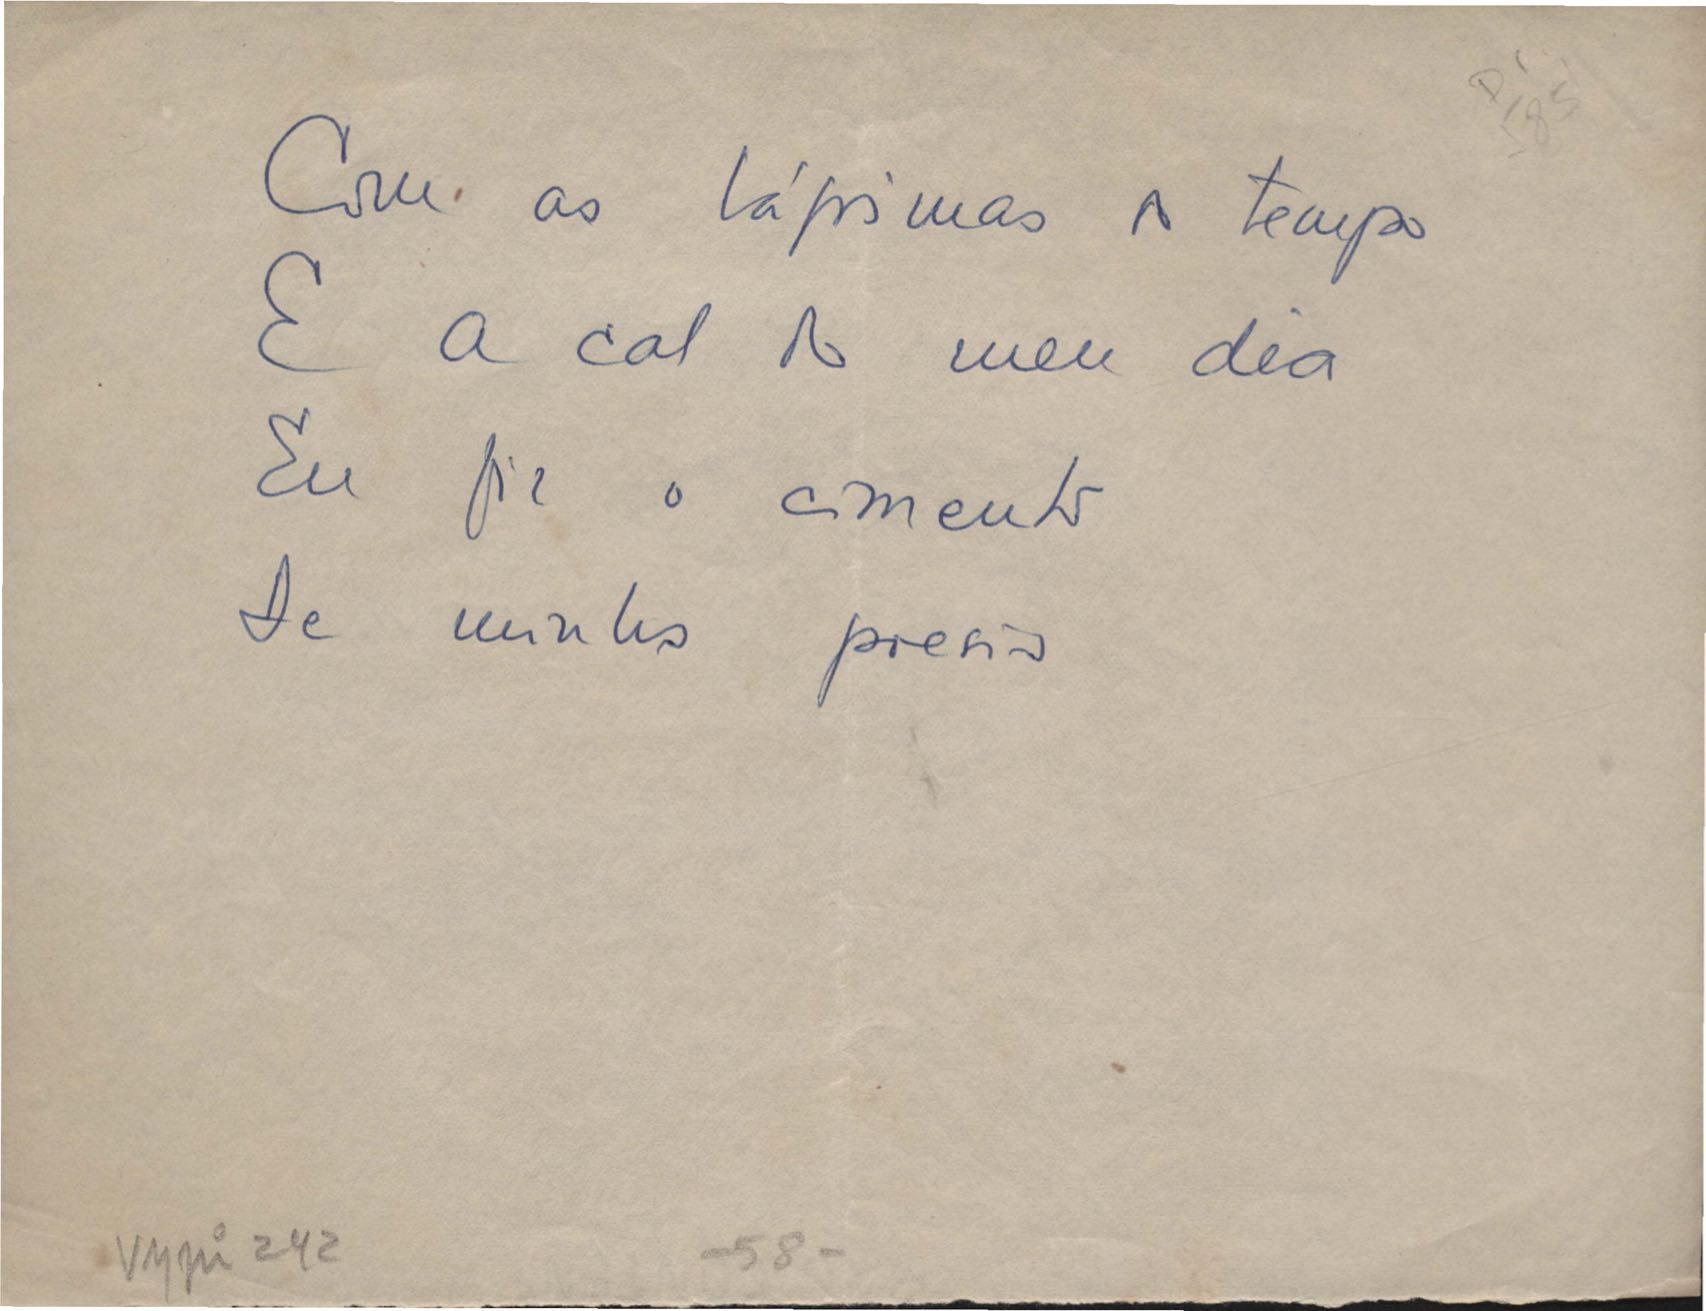 Com as lágrimas do tempo
E a cal do meu dia
Eu fiz o cimento
De minha poesia
242
-58-